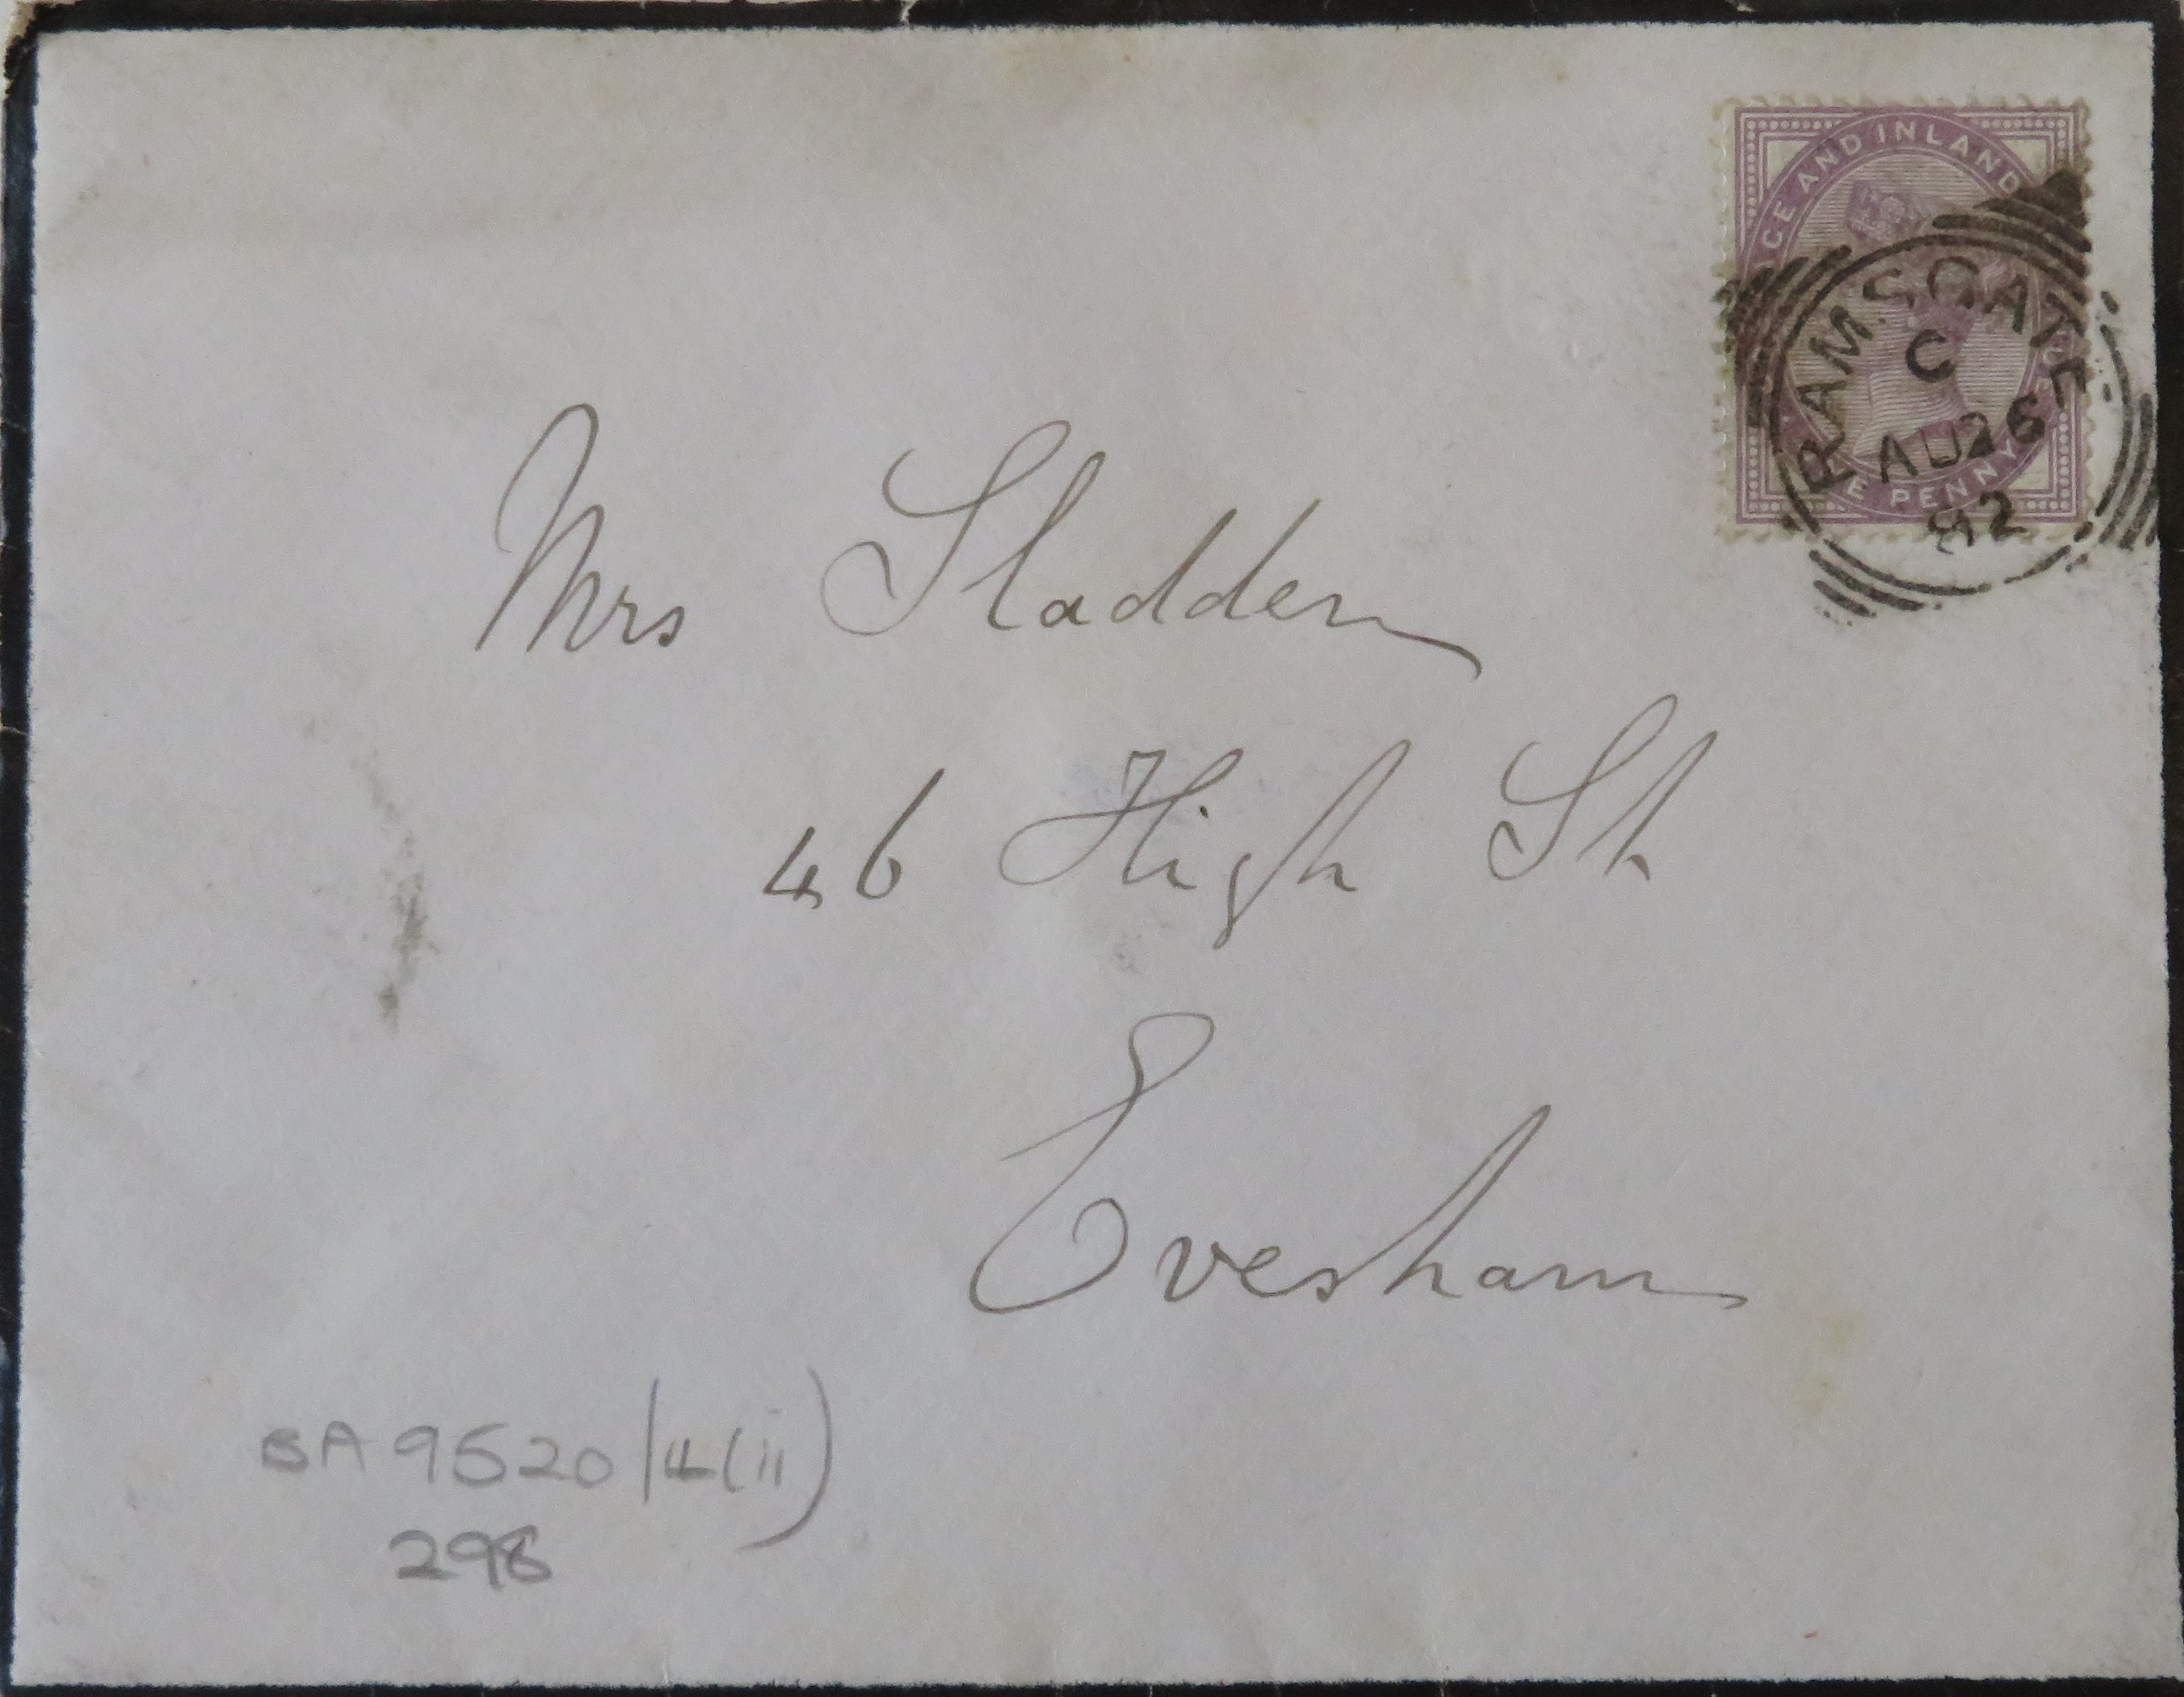 AND INLAND
PENNY
RAMSGATE
C
AU 26
92
Mrs Sladden
46 High St
Evesham
BA 9520/4(ii)
298